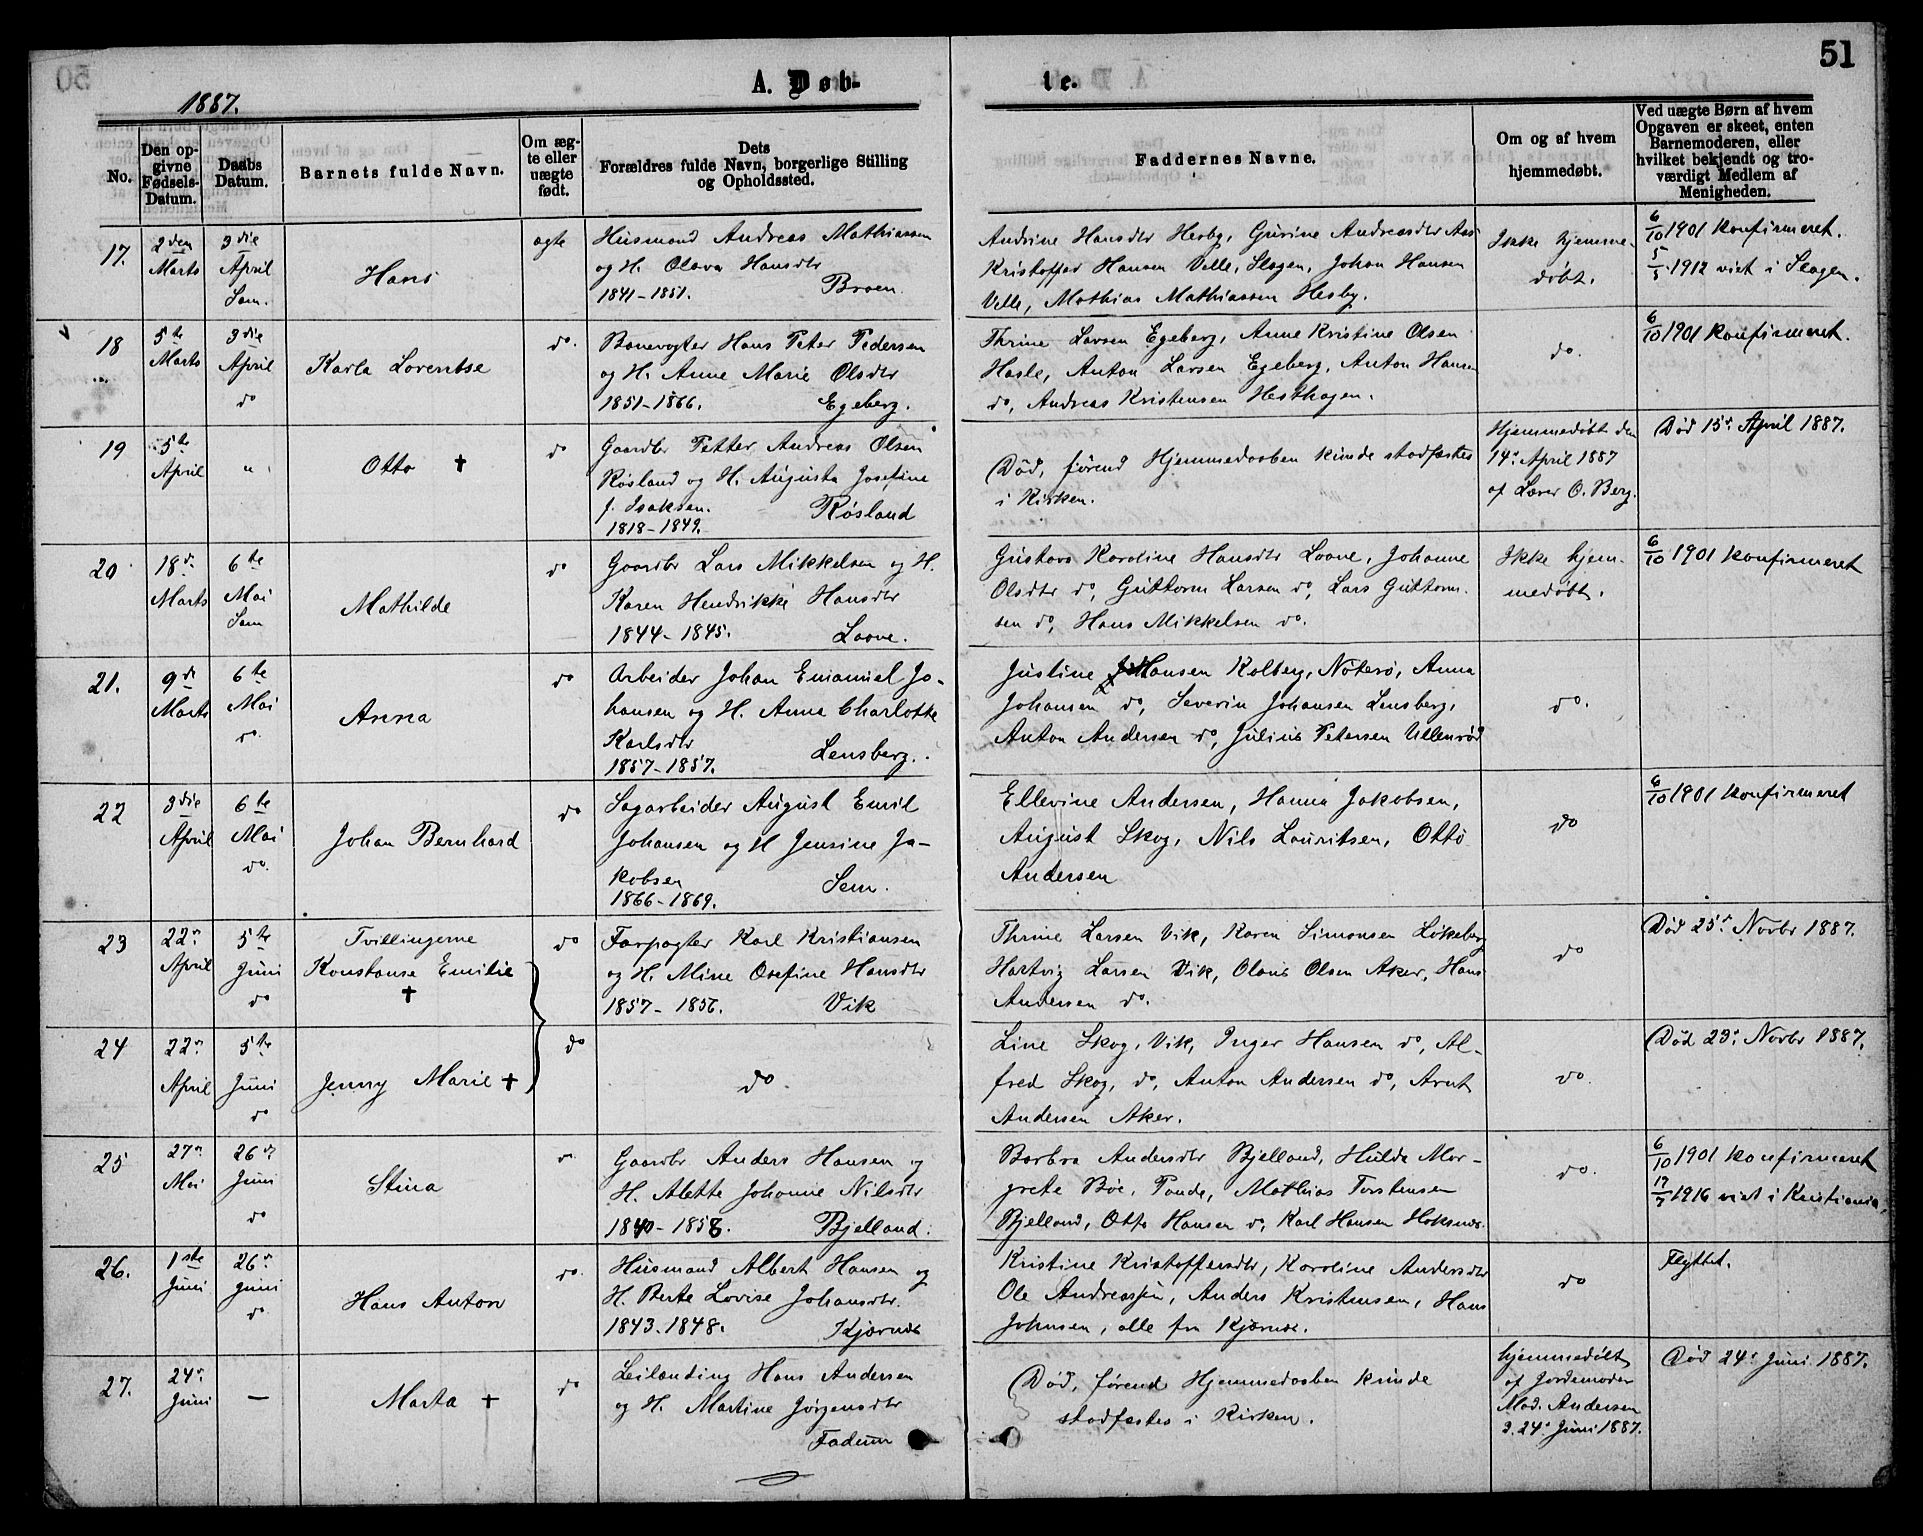 51
1887.
A. Døb-
te.
No.
Den op-
givne
Fødsels-
Datum.
Daabs
Datum.
Barnets fulde Navn.
Om æg-
te eller
uægte
født.
Dets
Forældres fulde Navn, borgerlige Stilling
og Opholdssted.
Faddernes Navne.
Om og af hvem
hjemmedøbt.
Ved uægte Børn af hvem
Opgaven er skeet, enten
Barnemoderen, eller
hvilket bekjendt og tro-
værdigt Medlem af
Menigheden.
17.
2den
Marts
3die
April
Sem.
Hans
ægte
Husmand Andreas Mathiassen
og H. Olava Hansdtr
1841-1851. Broen.
Andrine Hansdtr Hesby, Gurine Andreasdtr Aas
Kristoffer Hansen Velle, Slagen, Johan Hansen
Velle, Mathias Mathiassen Hesby.
Ikke hjemme-
døbt.
6/10 1901 konfirmeret.
5/5 1912 viet i Slagen.
18
5te
Marts
3die
April
do
Karla Lorentse
do.
Banevogter Hans Peter Pedersen
og H. Anne Marie Olsdtr
1851-1866. Egeberg.
Thrine Larsen Egeberg, Anne Kristine Olsen
Hasle, Anton Larsen Egeberg, Anton Hansen
do, Andreas Kristensen Hesthagen.
do.
6/10 1901 konfirmeret.
19
5te
April
"
Otto †
do
Gaardbr Petter Andreas Olsen
Røsland og H. Augusta Josefine
f. Isaksen.
1818-1849. Røsland
Død, førend Hjemmedaaben kunde stadfæstes
i Kirken.
Hjemmedøbt den
14. April 1887
af Lærer O. Berg.
Død 15. April 1887.
20
18de
Marts
6te
Mai
Sem
Mathilde
do
Gaardbr Lars Mikkelsen og H.
Karen Hendrikke Hansdtr
1844-1845. Laane.
Gustava Karoline Hansdtr Laane, Johanne
Olsdtr do, Guttorm Larsen do, Lars Guttorm-
sen do, Hans Mikkelsen do.
Ikke hjem-
medøbt.
6/10 1901 konfirmeret
21.
9de
Marts
6te
Mai
do.
Anna
do
Arbeider Johan Emanuel Jo-
hansen og H. Anna Charlotte
Karlsdtr
1857-1857. Lensberg.
Justine Hansen Kolberg, Nøterø, Anna
Johansen do, Severin Johansen Lensberg,
Anton Andersen do, Julius Petersen Ullenrød
do.
22
3die
April
6te
Mai
do.
Johan Bernhard
do
Sagarbeider August Emil
Johansen og H Jensine Ja-
kobsen
1866-1869. Sem.
Ellevine Andersen, Hanna Jakobsen,
August Skog, Nils Lauritsen, Otto
Andersen
do
6/10 1901 konfirmeret
23
22.
April
5te
Juni
do
Tvillingerne
Konstanse Emilie
†
do
Forpagter Karl Kristiansen
og H. Mine Osefine Hansdtr
1857-1856. Vik
Thrine Larsen Vik, Karen Simonsen Løkeberg
Hartvig Larsen Vik, Olaus Olsen Aker, Hans
Andersen do.
do
Død 25. Novbr 1887.
24
22.
April
5te
Juni
do
Jenny Marie †
do
do.
Line Skog, Vik, Inger Hansen do, Al-
fred Skog, do, Anton Andersen do, Arnt
Andersen Aker.
do.
Død 23. Novbr 1887.
25
27.
Mai
26de
Juni
do
Stina
do
Gaardbr Anders Hansen og
H. Alette Johanne Nilsdtr
1840-1858. Bjelland.
Barbra Andersdtr Bjelland, Hulda Mar-
grete Bøe, Ramnæs, Mathias Torstensen
Bjelland, Otto Hansen do, Karl Hansen Haksnes.
do.
6/10 1901 konfirmeret
17/7 1916 viet i Kristiania.
26.
1ste
Juni
26.
Juni
do
Hans Anton
do.
Husmand Albert Hansen og
H. Berte Lovise Johansdtr.
1843-1848. Kjærnæs
Kristine Kristoffersdtr, Karoline Andersdtr
Ole Andreassen, Anders Kristensen, Hans
Johnsen, alle fra Kjærnæs.
do
Flyttet.
27.
24.
Juni
—
Marta †
do
Leilænding Hans Andersen
og H. Martine Jørgensdtr
Fadum
Død, førend Hjemmedaaben kunde
stadfæstes i Kirken.
hjemmedøbt
af Jordemoder
Mad. Andersen
d. 24. Juni 1887.
Død 24. Juni 1887.